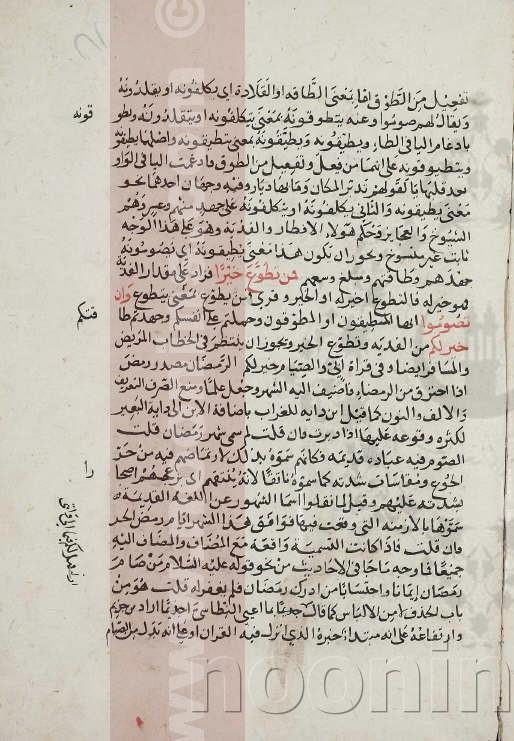 تفعيل من الطوق اما بمعنى الطاقه او القلادة اى يكلفونه او يقلدونه
ويقال لهم صوموا وعنه يتطوقونه بمعنى يتكلفونه او يتقلدونه ويطوقونه
بادغام التا فى الطاء ويطيقونه ويطيقونه بمعنى يتطيقونه واصلهما يطيوقونه
ويتطيوقونه على انهما من فيعل وتفيعل من الطوق فادغمت اليا فى الواو
بعد قلبها يا كقولهم تدير المكان وما بها ديار وفيه وجهان احدهما نحو
معنى يطيقونه والثانى يكلفونه او يتكلفونه على جهد منهم وعسر وهم
الشيوخ والعجايز وحكم هولاء الافطار والفديه وهو على هذا الوجه
ثابت غير منسوخ ويجوز ان يكون هذا معنى يطيقونه اى يصومونه
جهدهم وطاقتهم ومبلغ وسعهم فمن تطوع خيرا فزاد على مقدار الفدية
فهو خير له فالتطوع اخير له او الخير وقرى فمن يطوع بمعنى يتطوع وان
تصوموا ايها المطيقون او المطوقون وحملتم على انفسكم وجهدتم طا
خير لكم من الفديه وتطوع الخير ويجوز ان ينتظم فى الخطاب المريض
والمسافر ايضا وفى قراة ابى والصيام خير لكم الرمضان مصدر رمض
اذا احترق من الرمضاء فاضيف اليه الشهر وجعل علما ومنع الصرف للتعريف
والالف والنون كما قيل ابن دايه للغراب باضافة الابن الى داية البعير
لكثره وقوعه عليها اذا دبرت فان قلت لم سمى شهر رمضان قلت
الصوم فيه عباده قديمه فكانهم سموه بذلك لارتماضهم فيه من حر
الجوع ومقاسات شدته كما سموه ناتقا لانه كان ينتقهم اى يزعجهم اضجارا
بشدته عليهم وقيل لما نقلوا اسما الشهور عن اللغه القديمه
سموها بالازمنه التى وقعت فيها فوافق هذا الشهر ايام رمض الحر
فان قلت فاذا كانت التسميه واقعه مع المضاف والمضاف اليه
جميعا فما وجه ما جا فى الاحاديث من نحو قوله عليه السلام من صام
رمضان ايمانا واحتسابا من ادرك رمضان فلم يغفر له قلت هو من
باب الحذف لامن الالباس كما قال بما اعيى النطاسى حذيما اراد ابن حذيم
وارتفاعه على انه مبتدا خبره الذى انزل فيه القران او على انه بدل من الصيام
قونه
قتكم
را
noonin